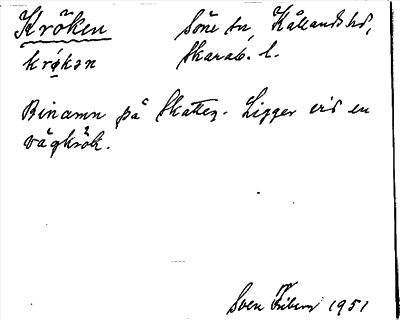 Kröken Söne sn, Kållands hd,
krøkən Skarab. l.
Binamn på Skatten. Ligger vid en
vägkrök.
Sven Friberg 1951